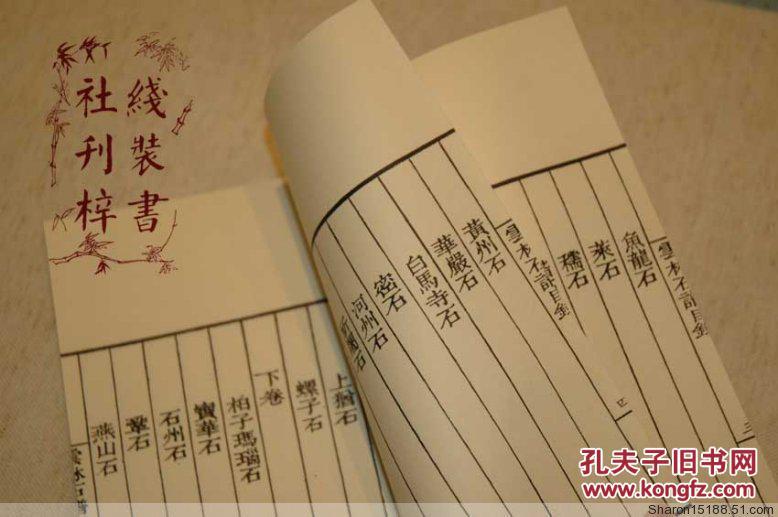 綫裝書
社刊梓
魚龍石
萊石
穤石
黃州石
華嚴石
白馬寺石
密石
河州石
上猶石
螺子石
下卷
柏子瑪瑙石
寶華石
石州石
鞏石
燕山石
雲林石譜
孔夫子旧书网
www.kongfz.com
Sharon15188.51.com